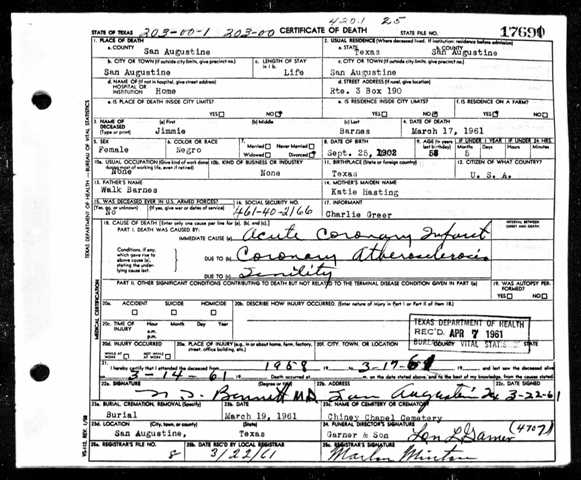 4201 25
STATE OF TEXAS 203-00-1 203-00 CERTIFICATE OF DEATH STATE FILE NO. 17690
1. PLACE OF DEATH
a. COUNTY San Augustine
2. USUAL RESIDENCE (Where deceased lived. If institution: residence before admission)
a. STATE Texas b. COUNTY San Augustine
b. CITY OR TOWN (If outside city limits, give precinct no.) San Augustine
c. LENGTH OF STAY in 1 b. Life
c. CITY OR TOWN (If outside city limits, give precinct no.) San Augustine
d. NAME OF (If not in hospital, give street address) HOSPITAL OR INSTITUTION Home
d. STREET ADDRESS (If rural, give location) Rte. 3 Box 190
e. IS PLACE OF DEATH INSIDE CITY LIMITS? YES NO
e. IS RESIDENCE INSIDE CITY LIMITS? YES NO
f. IS RESIDENCE ON A FARM? YES NO
3. NAME OF DECEASED (Type or print) (a) First Jimmie (b) Middle (c) Last Barnes
4. DATE OF DEATH March 17, 1961
5. SEX Female
6. COLOR OR RACE Negro
7. Married Never Married Widowed Divorced
8. DATE OF BIRTH Sept. 25, 1902
9. AGE (In years last birthday) 58
IF UNDER 1 YEAR Months 5 Days
IF UNDER 24 HRS. Hours Min.
10a. USUAL OCCUPATION (Give kind of work done during most of working life, even if retired) None
10b. KIND OF BUSINESS OR INDUSTRY None
11. BIRTHPLACE (State or foreign country) Texas
12. CITIZEN OF WHAT COUNTRY? U. S. A.
13. FATHER'S NAME Walk Barnes
14. MOTHER'S MAIDEN NAME Katie Hasting
15. WAS DECEASED EVER IN U.S. ARMED FORCES? (Yes, no, or unknown) (If yes, give war or dates of service) No
16. SOCIAL SECURITY NO. 461-40-2166
17. INFORMANT Charlie Greer
18. CAUSE OF DEATH (Enter only one cause per line for (a), (b), and (c).)
INTERVAL BETWEEN ONSET AND DEATH
PART I. DEATH WAS CAUSED BY:
IMMEDIATE CAUSE (a) Acute Coronary Infarct
Conditions, if any, which gave rise to above cause (a), stating the underlying cause last.
DUE TO (b) Coronary Atherosclerosis
DUE TO (c) Senility
PART II. OTHER SIGNIFICANT CONDITIONS CONTRIBUTING TO DEATH BUT NOT RELATED TO THE TERMINAL DISEASE CONDITION GIVEN IN PART I (a)
19. WAS AUTOPSY PERFORMED? YES NO
20a. ACCIDENT SUICIDE HOMICIDE
20b. DESCRIBE HOW INJURY OCCURRED. (Enter nature of injury in Part I or Part II of item 18.)
20c. TIME OF INJURY Hour Month Day Year a.m. p.m.
TEXAS DEPARTMENT OF HEALTH
REC'D. APR 7 1961
BUREAU VITAL STATISTICS
20d. INJURY OCCURRED WHILE AT WORK NOT WHILE AT WORK
20e. PLACE OF INJURY (e.g., in or about home, farm, factory, street, office building, etc.)
20f. CITY, TOWN, OR LOCATION COUNTY STATE
21. I hereby certify that I attended the deceased from 1958 to 3-17-61 and last saw the deceased alive
3-14-61 Death occurred at m. on the date stated above, and to the best of my knowledge, from the causes stated.
22a. SIGNATURE (Degree or title) Barnett MD
22b. ADDRESS San Augustine Tx
22c. DATE SIGNED 3-22-61
23a. BURIAL, CREMATION, REMOVAL (Specify) Burial
23b. DATE March 19, 1961
23c. NAME OF CEMETERY OR CREMATORY Chiney Chapel Cemetery
23d. LOCATION (City, town, or county) (State) San Augustine, Texas
24. FUNERAL DIRECTOR'S SIGNATURE Garner & Son Lon L Garner (4707)
25a. REGISTRAR'S FILE NO. 8
25b. DATE REC'D BY LOCAL REGISTRAR 3/22/61
25c. REGISTRAR'S SIGNATURE Marlon Minton
TEXAS DEPARTMENT OF HEALTH—BUREAU OF VITAL STATISTICS
MEDICAL CERTIFICATION
VS-112, REV. 1/58